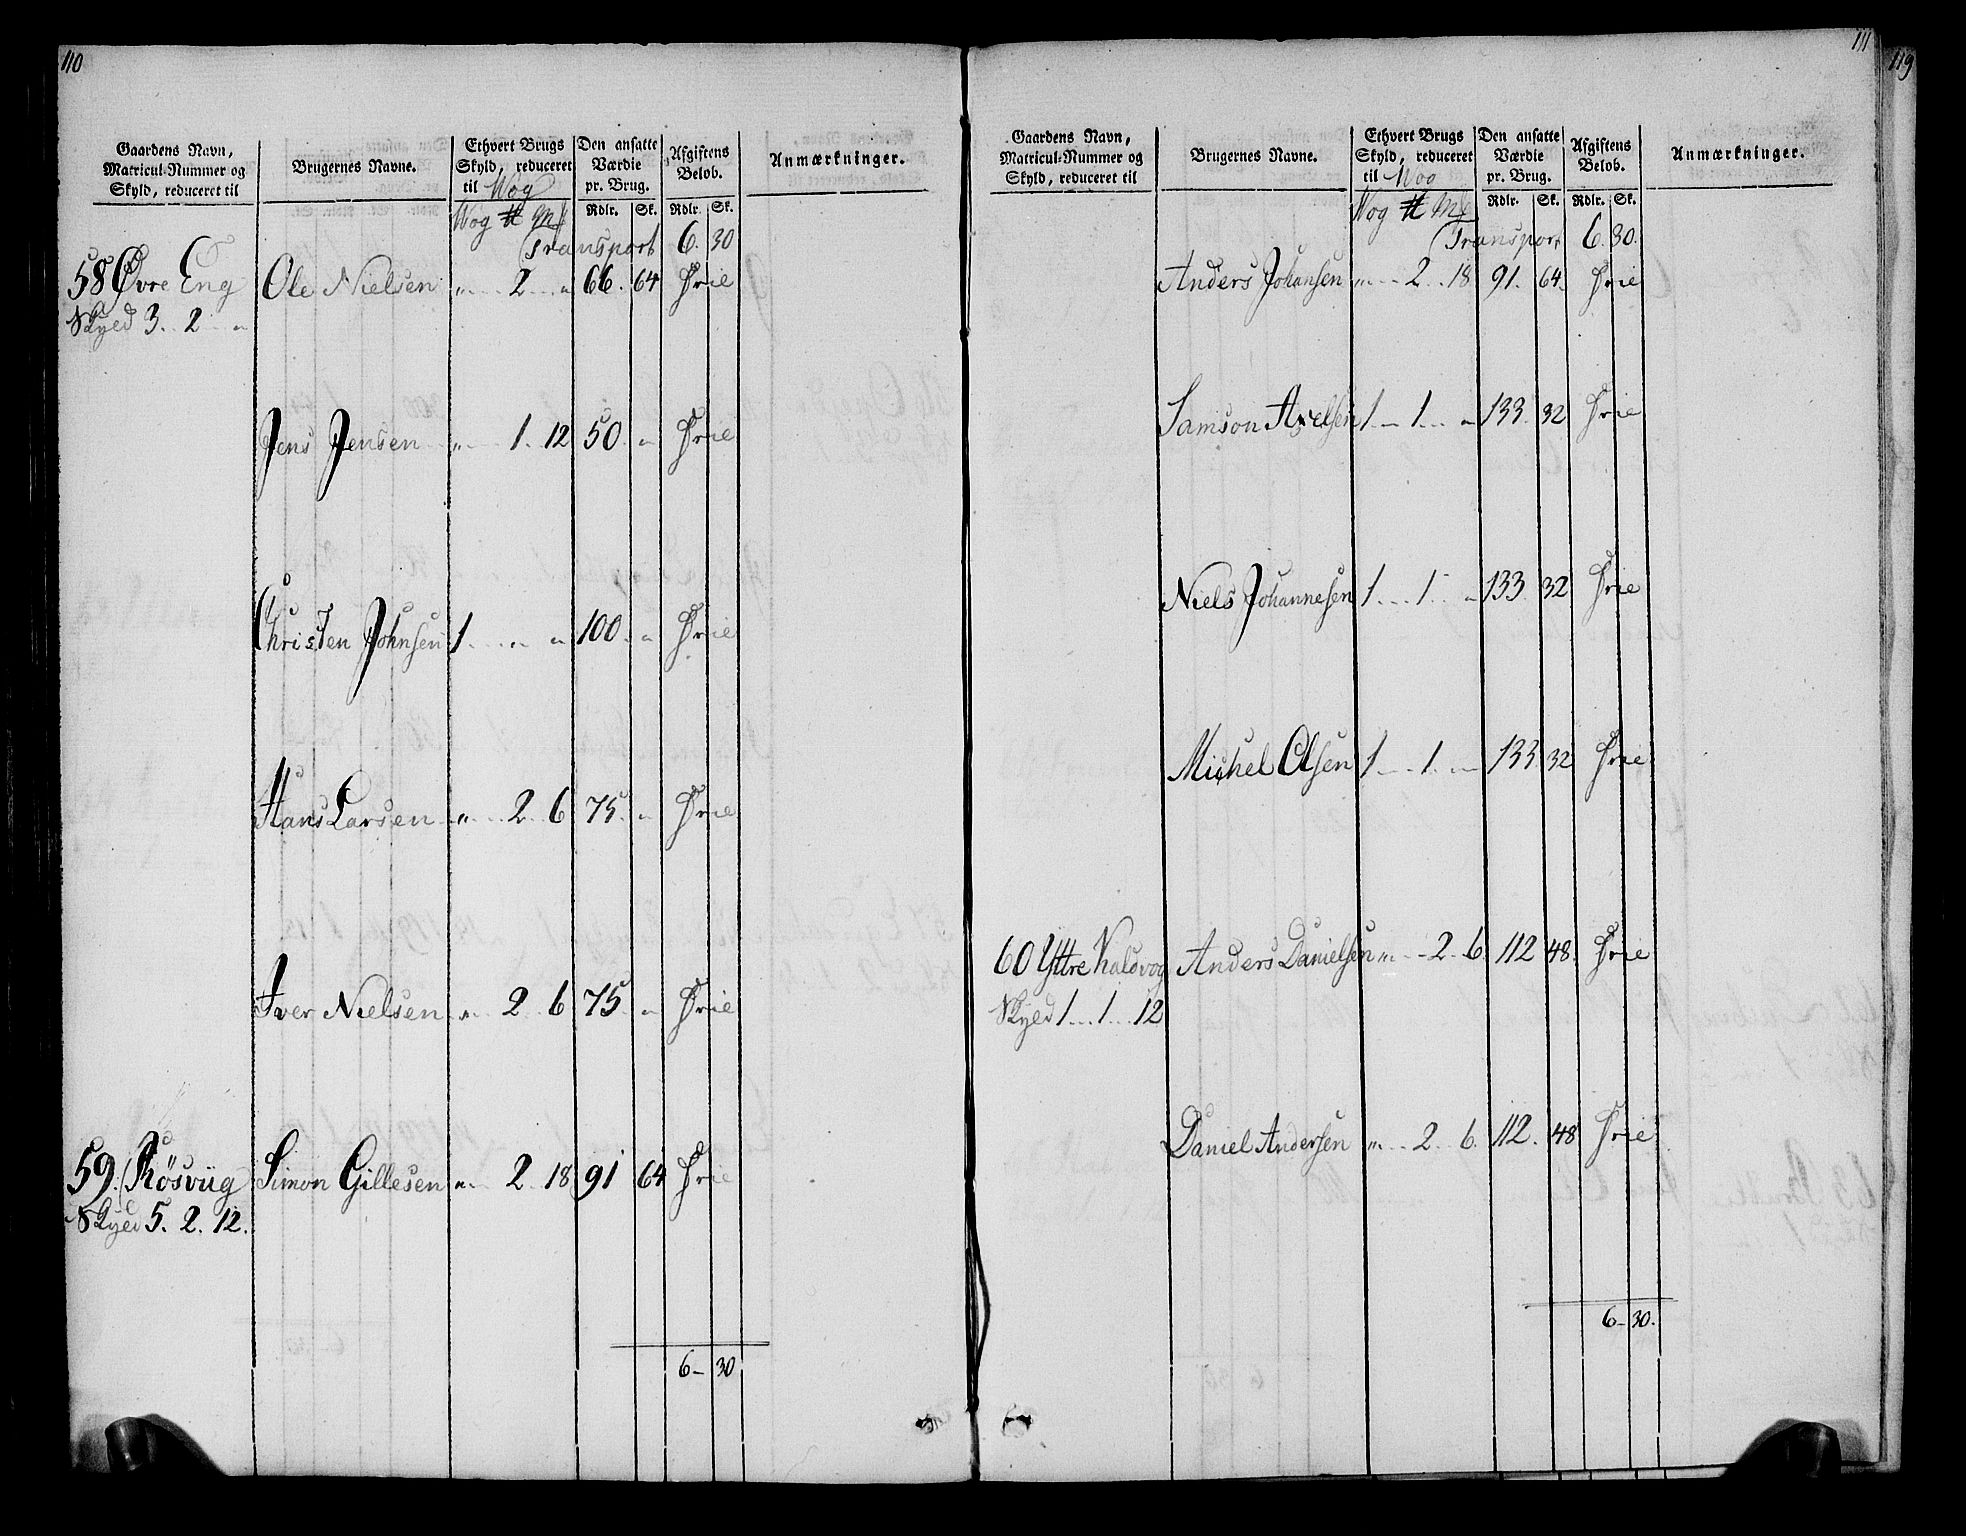 110
Gaardens Navn, Matricul-Nummer og Skyld, reduceret til
Brugernes Navne.
Ethvert Brugs Skyld, reduceret til Wog
Den ansatte Værdie pr. Brug.
Afgiftens Beløb.
Anmærkninger.
Wog ℔ Mk Rdlr. Sk. Rdlr. Sk.
Transport 6. 30
58 Øvre Eng Ole Nielsen " 2 " 66. 64 Frie
Skyld 3. 2 "
Jens Jensen " 1. 12 50. " Frie
Christen Johnsen 1 " " 100. " Frie
Hans Larsen " 2 6 75. " Frie
Iver Nielsen " 2 6 75 " Frie
59. Røsviig Simon Gillesen " 2 18 91 64 Frie
Skyld 5. 2. 12.
6 - 30
111
Gaardens Navn, Matricul-Nummer og Skyld, reduceret til
Brugernes Navne.
Ethvert Brugs Skyld, reduceret til Wog
Den ansatte Værdie pr. Brug.
Afgiftens Beløb.
Anmærkninger.
Wog ℔ Mk Rdlr. Sk. Rdlr. Sk.
Transport 6. 30.
Anders Johansen " 2 18 91. 64. Frie
Samson Axelsen 1 1 " 133. 32 Frie
Niels Johannesen 1 1 " 133 32 Frie
Michel Olsen 1 1 " 133 32 Frie
60 Yttre Kalsvog Anders Danielsen " 2 6. 112 48. Frie
Skyld 1 1 12
Daniel Andersen " 2 6. 112. 48 Frie
6 - 30.
119